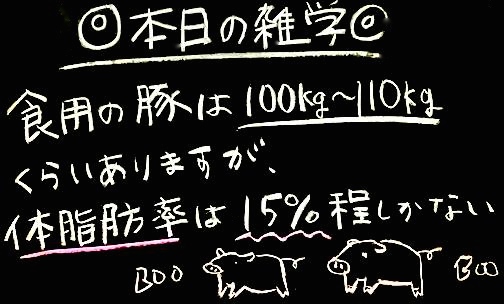 ◎本日の雑学◎
食用の豚は100kg〜110kg
くらいありますが、
体脂肪率は15%程しかない
BOO BOO